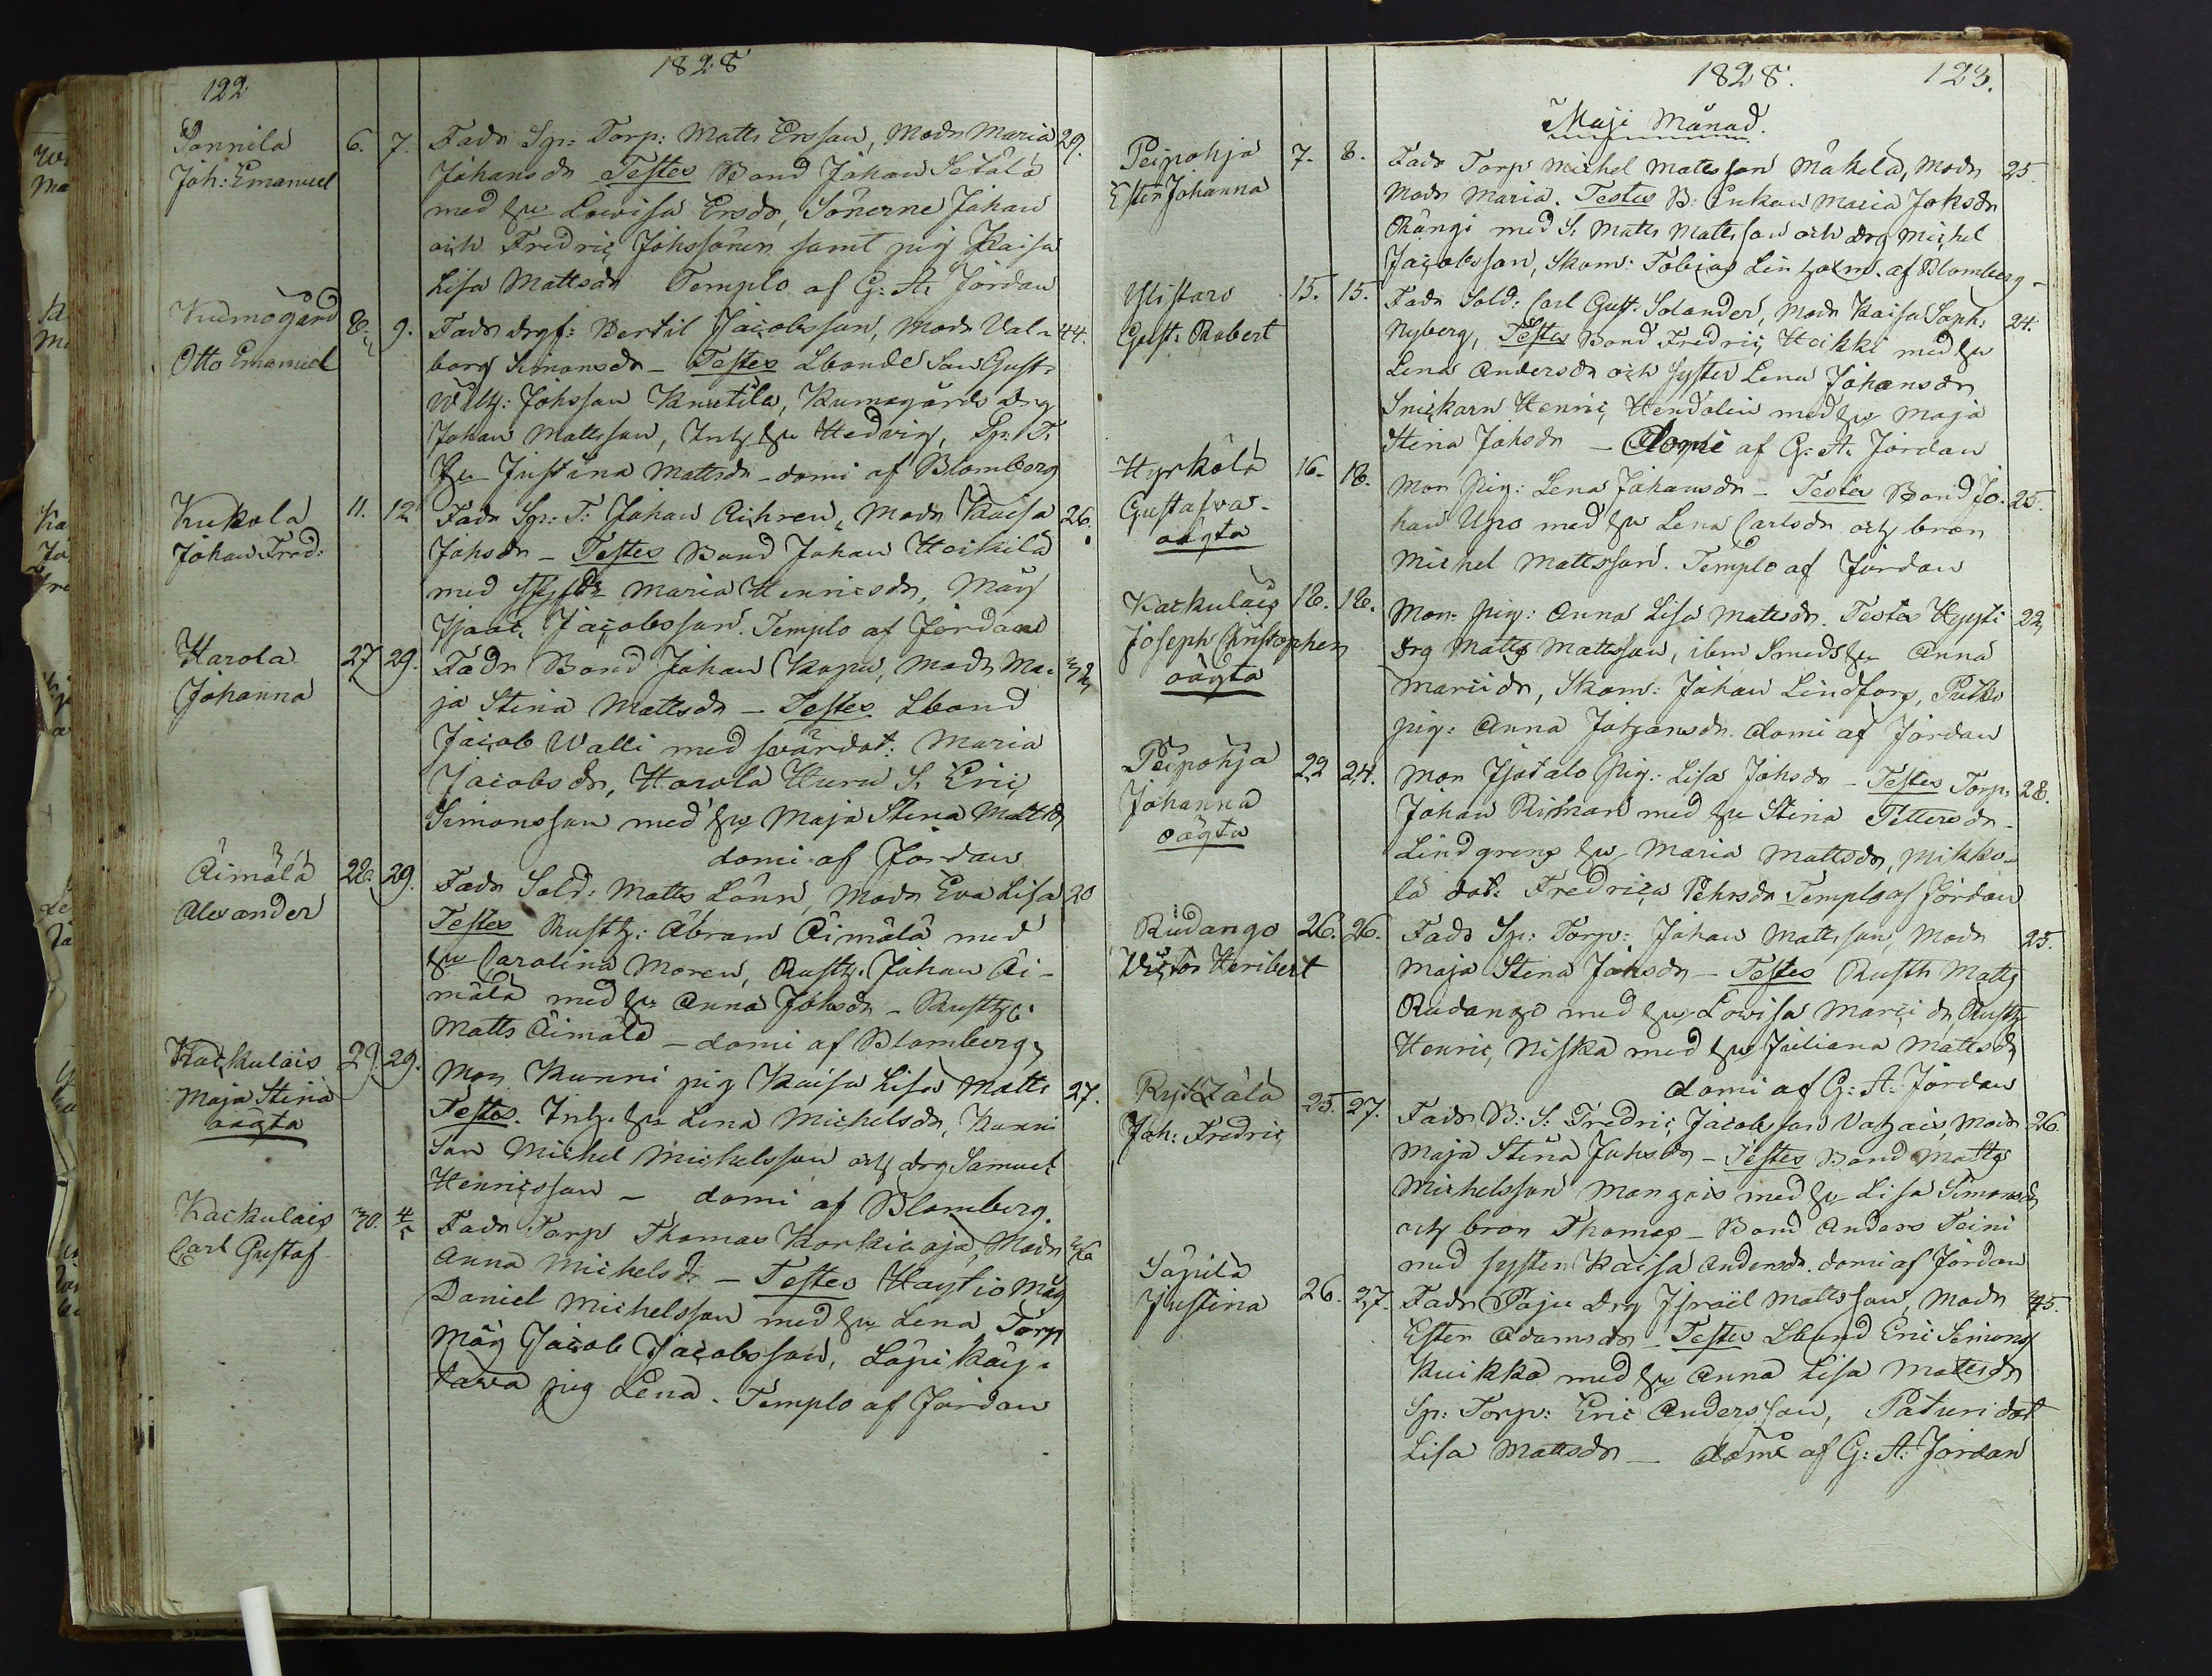 122
1828
Sonnila 6. 7. Fadr Sp: Torp: Matts Ersson, Modr Maria 29.
Joh: Emanuel Johansdr Testes Bond Johan Setälä
med hu Lowisa Ersdr, Sönerne Johan
och Fredric Johssöner samt pig Kaisa
Lisa Mattsdr Templo af G: A: Jordan
Kumogård 8. 9. Fadr drgf: Bertil Jacobsson, Modr Val- 44.
Otto Emanuel borg Simonsdr - Testes Lbonde Son Gust.
Wilh: Johsson Knutila, Kumogårds drg
Johan Mattsson, Inh hu Hedvig, Sp: T:
hu Justina Mattsdr - domi af Blomberg
Kukola 11. 12 Fadr Sp: T: Johan Aihren, Modr Kaisa 26.
Johan Fred: Johsdr - Testes Bond Johan Heikilä
med Maria Henricsdr, Måg
Isaac Jacobsson. Templo af Jordan
Harola 27 29. Fadr Bond Johan Kopu, Modr Ma- 32
Johanna ja Stina Mattsdr - Testes Lbond
Jacob Walli med svärdot: Maria
Jacobsdr, Harola Huru S. Eric
Simonsson med hu Maja Stina Mattsdr
domi af Jordan
Äimälä 28. 29. Fadr Sold: Matts Lönn, Modr Eva Lisa 20
Alexander Testes Rusth: Abram Äimälä med
hu Carolina Moren, Rusth. Johan Äi-
mälä med hu Anna Johsdr - Rusth:
Matts Äimälä - domi af Blomberg
Kackulais 29. 29. Mor Kunni pig Kaisa Lisa Matts 27.
Maja Stina Testes. Inh. hu Lena Michelsdr, Kunni
oägta Son Michel Michelsson och drg Samuel
Henricsson - domi af Blomberg.
Kackulais 30. 4/5 Fadr Torp Thomas Korkiaoja, Modr 36
Carl Gustaf Anna Michelsdr - Testes Haytio Måg
Daniel Michelsson med hu Lena Torp
Måg Jacob Jacobsson, Läpi Käy-
tävä pig Lena. Templo af Jordan
1828. 123.
Maji Månad.
Peipohja 7. 8. Fadr Torp Michel Mattsson Mäkelä, Modr 25
Ester Johanna Modr Maria. Testes B: Enkan Maria Johsdr
Rängi med S. Matts Mattsson och drg Michel
Jacobsson, Skom: Tobias Linholm. af Blomberg -
Ylistaro 15. 15. Fadr Sold: Carl Gust. Solander, Modr Kaisa Soph: 24.
Gust: Robert Nyberg, Testes Bond Fredric Heikki med hu
Lena Andersdr och Syster Lena Johansdr
Snickarn Henric Hendolin med hu Maja
Stina Johsdr - domi af G: A. Jordan
Hyrkölä 16. 18. Mor pig: Lena Johansdr - Testes Bond Jo- 25.
Gustafva. han Upo med hu Lena Carlsdr och bron
oägta Michel Mattsson. Templo af Jordan
Kackulais 18. 18. Mor: pig: Anna Lisa Mattsdr. Testes Hyyti 22
Joseph Christopher drg Matts Mattsson, ibm Smeds hu Anna
oägta Maricidr, Skom: Johan Lindfors, Puiko
pig: Anna Johansdr. domi af Jordan
Peipohja 22 24. Mor Isotalo pig: Lisa Johsdr - Testes Torp: 28.
Johanna Johan Riihiari med hu Stina Pettersdr.
oägta Lindgrens hu Maria Mattsdr, Mikko-
lä dot: Fredrica Pehrsdr Templo af Jordan
Rudango 26. 26. Fadr Sp: Torp: Johan Mattsson, Modr 25.
Victor Heribert Maja Stina Johsdr - Testes Rusth Matts
Rudango med hu Lowisa Maricidr, Rusth
Henric Niska med hu Juliana Mattsdr
domi af G: A: Jordan
Rytzälä 25. 27. Fadr B: S: Fredric Jacobsson Vahais, Modr 26.
Joh: Fredric Maja Stina Johsdr - Testes Bond Matts
Michelsson Mangois med hu Lisa Simonsdr
och bron Thomas - Bond Anders Teini
med syster Kaisa Andersdr. domi af Jordan
Säpilä
Justina 26. 27. Fadr Paju drg Israël Mattsson, Modr 45.
Ester Adamsdr - Testes Lbond Eric Simons
Kuikka med hu Anna Lisa Mattsdr
Sp: Torp: Eric Andersson, Paturi dot
Lisa Mattsdr - domi af G: A: Jordan